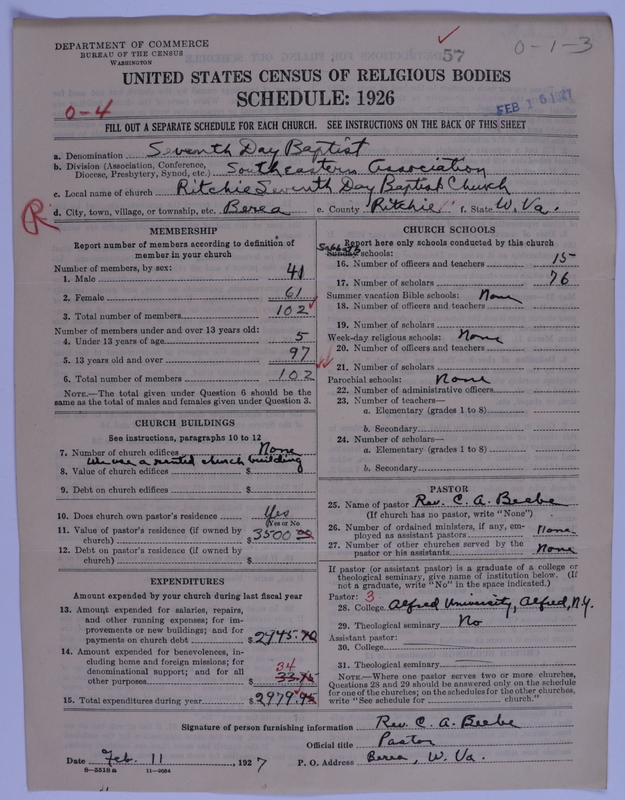 DEPARTMENT OF COMMERCE
BUREAU OF THE CENSUS
WASHINGTON
57
0-1-3
UNITED STATES CENSUS OF RELIGIOUS BODIES
SCHEDULE: 1926
0-4
FEB 16 1927
FILL OUT A SEPARATE SCHEDULE FOR EACH CHURCH. SEE INSTRUCTIONS ON THE BACK OF THIS SHEET
a. Denomination Seventh Day Baptist
b. Division (Association, Conference, Diocese, Presbytery, Synod, etc.) Southeastern Association
c. Local name of church Ritchie Seventh Day Baptist Church
R
d. City, town, village, or township, etc. Berea e. County Ritchie f. State W. Va.
MEMBERSHIP
Report number of members according to definition of
member in your church
Number of members, by sex:
1. Male 41
2. Female 61
3. Total number of members 102
Number of members under and over 13 years old:
4. Under 13 years of age 5
5. 13 years old and over 97
6. Total number of members 102
NOTE.—The total given under Question 6 should be
same as the total of males and females given under Question 3.
CHURCH BUILDINGS
See instructions, paragraphs 10 to 12
7. Number of church edifices None
We use a rented church building
8. Value of church edifices $
9. Debt on church edifices $
10. Does church own pastor's residence Yes
(Yes or No)
11. Value of pastor's residence (if owned by
church) $ 3500 00
12. Debt on pastor's residence (if owned by
church) $
EXPENDITURES
Amount expended by your church during last fiscal year
13. Amount expended for salaries, repairs,
and other running expenses; for im-
provements or new buildings; and for
payments on church debt $ 2945.20
14. Amount expended for benevolences, in-
cluding home and foreign missions; for
denominational support; and for all
34
other purposes $ 33.75
15. Total expenditures during year $ 2979.95
CHURCH SCHOOLS
Report here only schools conducted by this church
Sabbath
Sunday schools:
16. Number of officers and teachers 15
17. Number of scholars 76
Summer vacation Bible schools: None
18. Number of officers and teachers
19. Number of scholars
Week-day religious schools: None
20. Number of officers and teachers
21. Number of scholars
Parochial schools: None
22. Number of administrative officers
23. Number of teachers—
a. Elementary (grades 1 to 8)
b. Secondary
24. Number of scholars—
a. Elementary (grades 1 to 8)
b. Secondary
PASTOR
25. Name of pastor Rev. C. A. Beebe
(If church has no pastor, write "None")
26. Number of ordained ministers, if any, em-
ployed as assistant pastors None
27. Number of other churches served by the
pastor or his assistants None
If pastor (or assistant pastor) is a graduate of a college or
theological seminary, give name of institution below. (If
not a graduate, write "No" in the space indicated.)
Pastor: 3
28. College Alfred University, Alfred, N.Y.
29. Theological seminary No
Assistant pastor:
30. College
31. Theological seminary
NOTE.—Where one pastor serves two or more churches,
Questions 28 and 29 should be answered only on the schedule
for one of the churches; on the schedules for the other churches,
write "See schedule for church."
Signature of person furnishing information Rev. C. A. Beebe
Official title Pastor
Date Feb. 11, 1927 P. O. Address Berea, W. Va.
8—5518a 11—9084